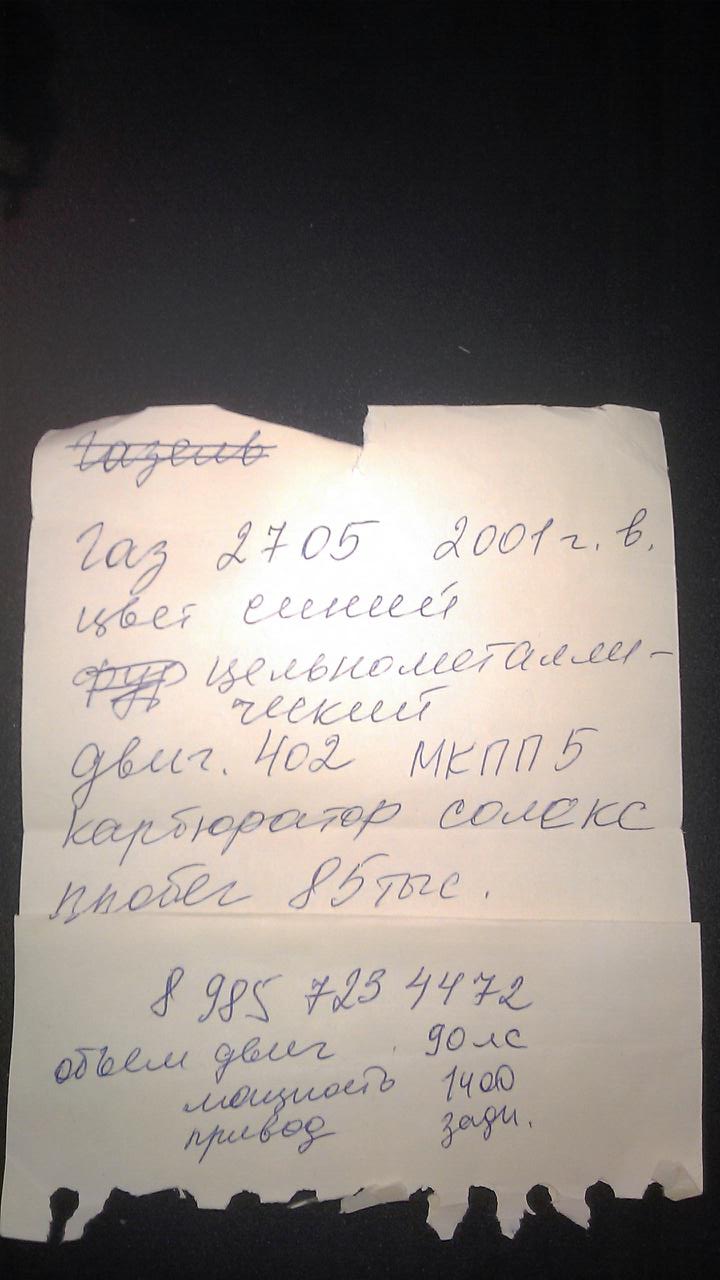 Газель
Газ 2705 2001 г. в.
цвет синий
фур цельнометалли-
ческий
двиг. 402 МКПП 5
карбюратор солекс
пробег 85 тыс.
8 985 723 4472
объем двиг 90 лс
мощность 1400
привод задн.